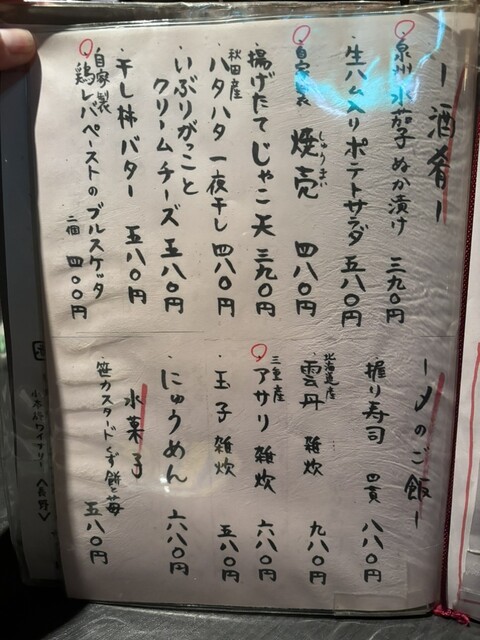 ー酒肴ー
泉州 水茄子 ぬか漬け 三九〇円
・生ハム入りポテトサラダ 五八〇円
自家製 焼売 四八〇円
しゅうまい
・揚げたてじゃこ天 三九〇円
秋田産
・ハタハタ 一夜干し 四八〇円
・いぶりがっこと
クリームチーズ 五八〇円
・干し柿バター 五八〇円
自家製
鶏レバペーストのブルスケッタ
二個 四〇〇円
ー〆のご飯ー
握り寿司 四貫 八八〇円
北海道産
・雲丹 雑炊 九八〇円
三重産
アサリ 雑炊 六八〇円
・玉子 雑炊 五八〇円
・にゅうめん 六八〇円
水菓子
・笹カスタードくず餅 苺 五八〇円